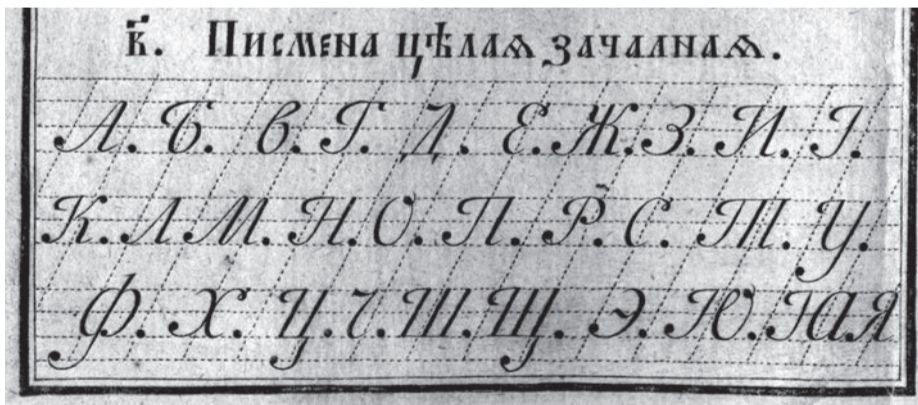 в҃. Писмена цѣлаѧ зачалнаѧ.
А. Б. В. Г. Д. Е. Ж. З. И. І.
К. Л. М. Н. О. П. Р. С. Т. У.
Ф. Х. Ц. Ч. Ш. Щ. Э. Ю. ІА Я